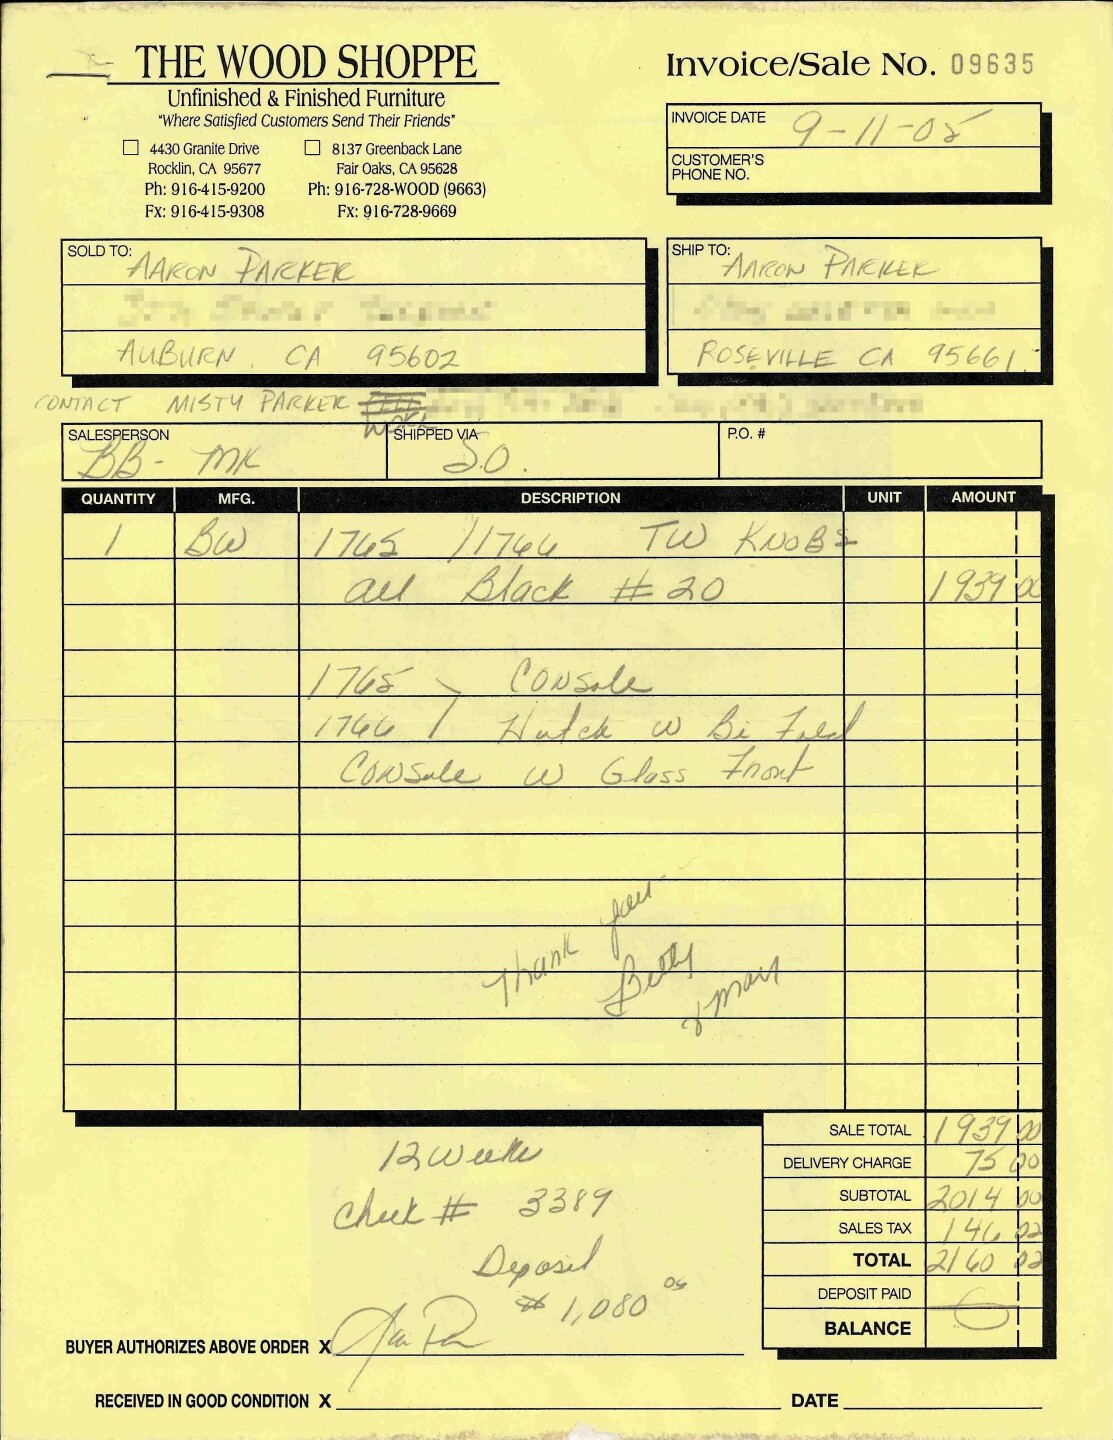 THE WOOD SHOPPE
Unfinished & Finished Furniture
"Where Satisfied Customers Send Their Friends"
4430 Granite Drive
Rocklin, CA 95677
Ph: 916-415-9200
Fx: 916-415-9308
8137 Greenback Lane
Fair Oaks, CA 95628
Ph: 916-728-WOOD (9663)
Fx: 916-728-9669
Invoice/Sale No. 09635
INVOICE DATE 9-11-05
CUSTOMER'S
PHONE NO.
SOLD TO: AARON PARKER
AUBURN, CA 95602
SHIP TO: AARON PARKER
ROSEVILLE CA 95661
CONTACT MISTY PARKER
SALESPERSON BB- MK
SHIPPED VIA S.O.
P.O. #
QUANTITY MFG. DESCRIPTION UNIT AMOUNT
1 BW 1765 /1766 TW KNOBS
all Black #20 1939 00
1765 \ Console
1766 / Hutch W Bi Fold
Console W Glass Front
Thank you
Betty
& Mary
SALE TOTAL 1939 00
DELIVERY CHARGE 75 00
SUBTOTAL 2014 00
SALES TAX 146 02
TOTAL 2160 02
DEPOSIT PAID
BALANCE
12 Weeks
Check # 3389
Deposit
1,080
BUYER AUTHORIZES ABOVE ORDER X
RECEIVED IN GOOD CONDITION X
DATE